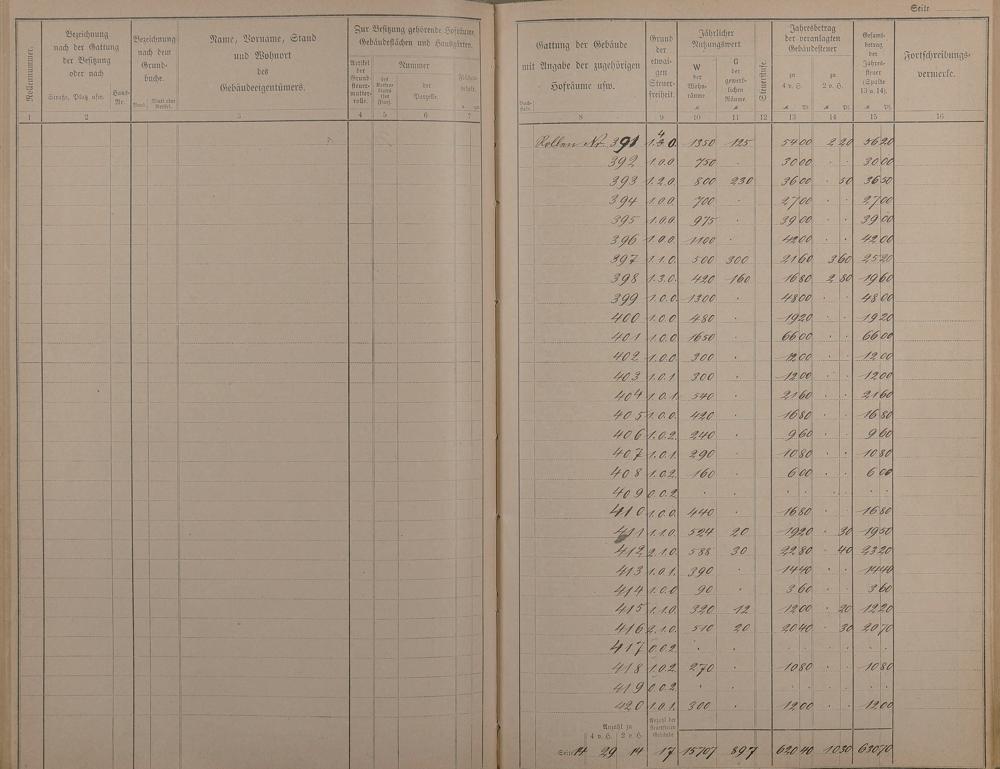 Seite
Rollennummer.
Bezeichnung
nach der Gattung
der Besitzung
oder nach
Straße, Platz usw.
Haus-
Nr.
Bezeichnung
nach dem
Grund-
buche.
Band.
Name, Vorname, Stand
und Wohnort
des
Gebäudeeigentümers.
Zur Besitzung gehörende Hofräume,
Gebäudeflächen und Hausgärten.
Artikel
der
Grund-
steuer-
mutter-
rolle.
Nummer
des
der
Parzelle.
1 2 3 4 5 6 7
Gattung der Gebäude
mit Angabe der zugehörigen
Hofräume usw.
Grund
der
etwai-
gen
Steuer-
freiheit.
Jährlicher
Nutzungswert
W
der
Wohn-
räume
G
der
gewerb-
lichen
Räume.
Steuerstufe.
Jahresbetrag
der veranlagten
Gebäudesteuer
zu
4 v. H.
zu
2 v. H.
Gesamt-
betrag
der
Jahres-
steuer
(Spalte
13 u. 14).
Fortschreibungs-
vermerke.
8 9 10 11 12 13 14 15 16
Rollen Nr. 391 1350 125 54 00 2 20 56 20
392 1.0.0. 750 · 30 00 · · 30 00
393 1.2.0. 800 230 36 00 · 50 36 50
394 1.0.0. 700 · 27 00 · · 27 00
395 1.0.0. 975 · 39 00 · · 39 00
396 1.0.0. 1100 · 42 00 · · 42 00
397 1.1.0. 500 300 21 60 3 60 25 20
398 1.3.0. 420 160 16 80 2 80 19 60
399 1.0.0. 1300 · 48 00 · · 48 00
400 1.0.0 480 · 19 20 · · 19 20
401 1.0.0 1650 · 66 00 · · 66 00
402 1.0.0 300 · 12 00 · · 12 00
403 1.0.1 300 · 12 00 · · 12 00
404 1.0.1. 540 · 21 60 · · 21 60
405 1.0.0. 420 · 16 80 · · 16 80
406 1.0.2. 240 · 9 60 · · 9 60
407 1.0.1. 290 · 10 80 · · 10 80
408 1.0.2. 160 · 6 00 · · 6 00
409 0.0.2 · · · · · · · ·
410 1.0.0. 440 · 16 80 · · 16 80
411 1.1.0. 524 20 19 20 · 30 19 50
412 2.1.0. 588 30 22 80 · 40 23 20
413 1.0.1. 390 · 14 40 · · 14 40
414 1.0.0 90 · 3 60 · · 3 60
415 1.1.0. 320 12 12 00 · 20 12 20
416 2.1.0. 510 20 20 40 · 30 20 70
417 0.0.2. · · · · · · · ·
418 1.0.2. 270 · 10 80 · · 10 80
419 0.0.2. · · · · · · · ·
420 1.0.1. 300 · 12 00 · · 12 00
Anzahl zu
4 v. H. 2 v. H.
Anzahl der
steuerfreien
Gebäude
29 14 17 15707 897 620 40 10 30 630 70